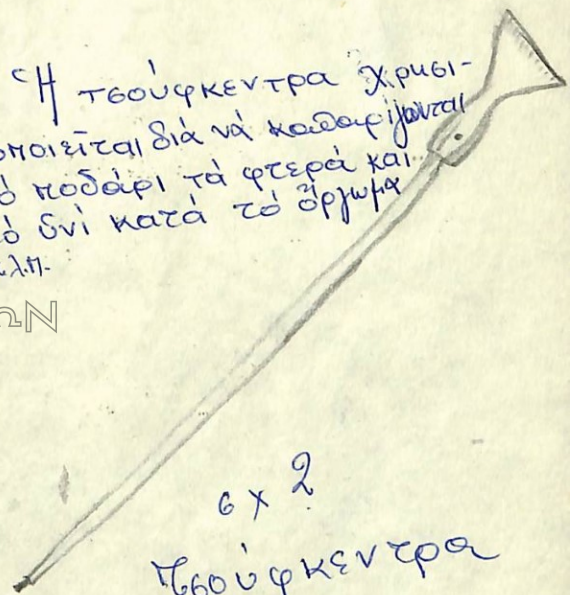 Ἡ τσούφκεντρα χρησι-
μοποιεῖται διὰ νά καθαρίζωνται
τό ποδάρι τά φτερά και
τό ὑνί κατά τό ὄργωμα
κ.λ.π.
ΩΝ
σχ 2
Τσούφκεντρα